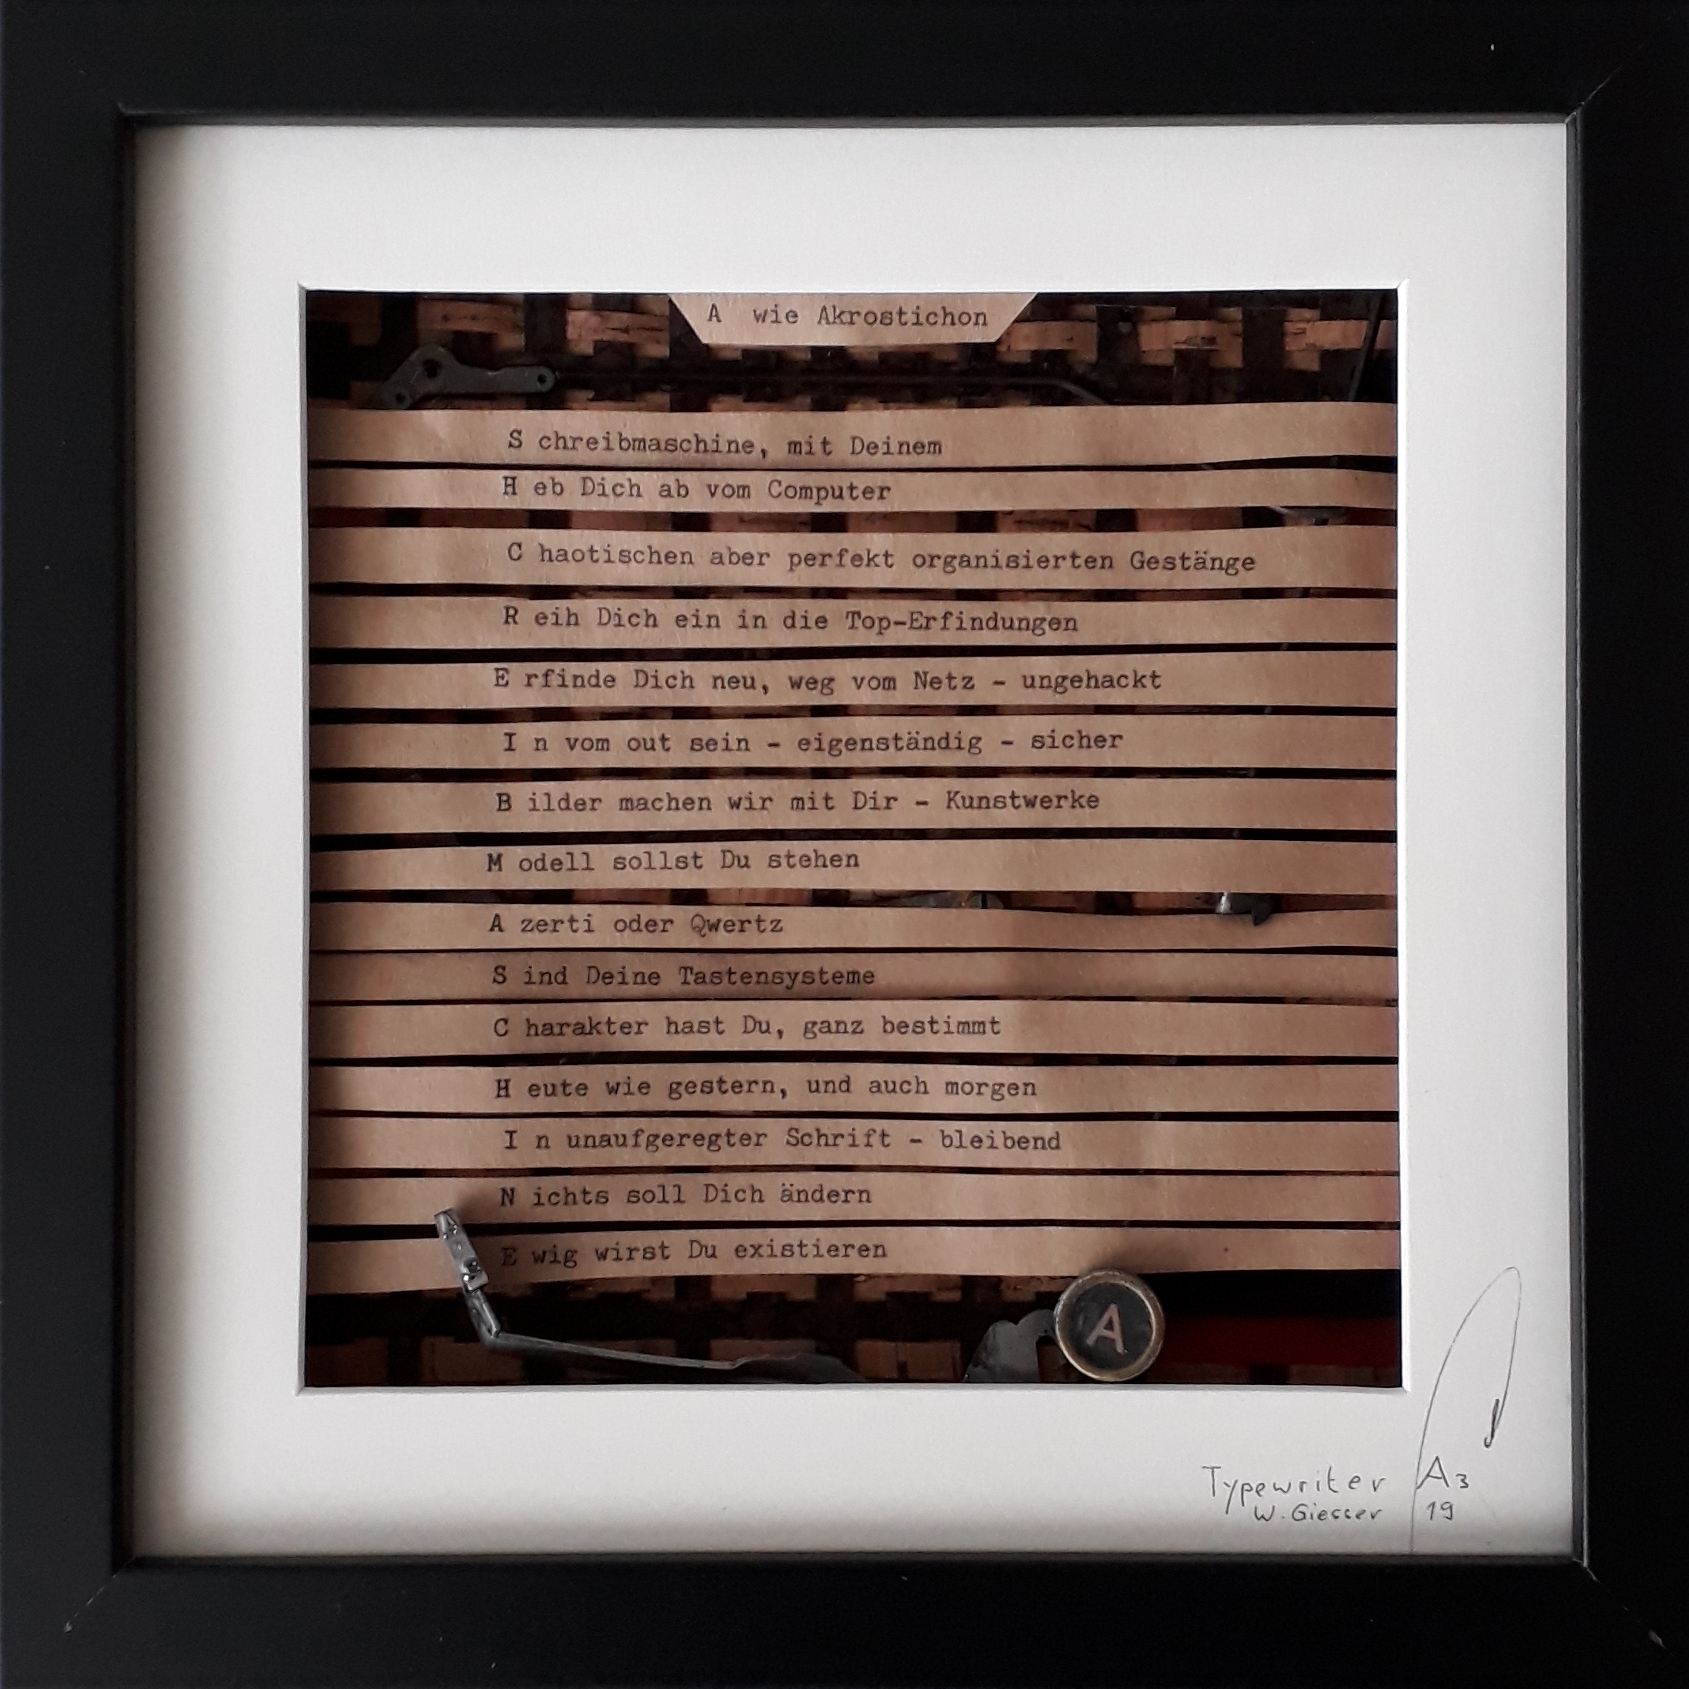 A wie Akrostichon
S chreibmaschine, mit Deinem
H eb Dich ab vom Computer
C haotischen aber perfekt organisierten Gestänge
R eih Dich ein in die Top-Erfindungen
E rfinde Dich neu, weg vom Netz - ungehackt
I n vom out sein - eigenständig - sicher
B ilder machen wir mit Dir - Kunstwerke
M odell sollst Du stehen
A zerti oder Qwertz
S ind Deine Tastensysteme
C harakter hast Du, ganz bestimmt
H eute wie gestern, und auch morgen
I n unaufgeregter Schrift - bleibend
N ichts soll Dich ändern
E wig wirst Du existieren
A
Typewriter A3
W. Giesser 19